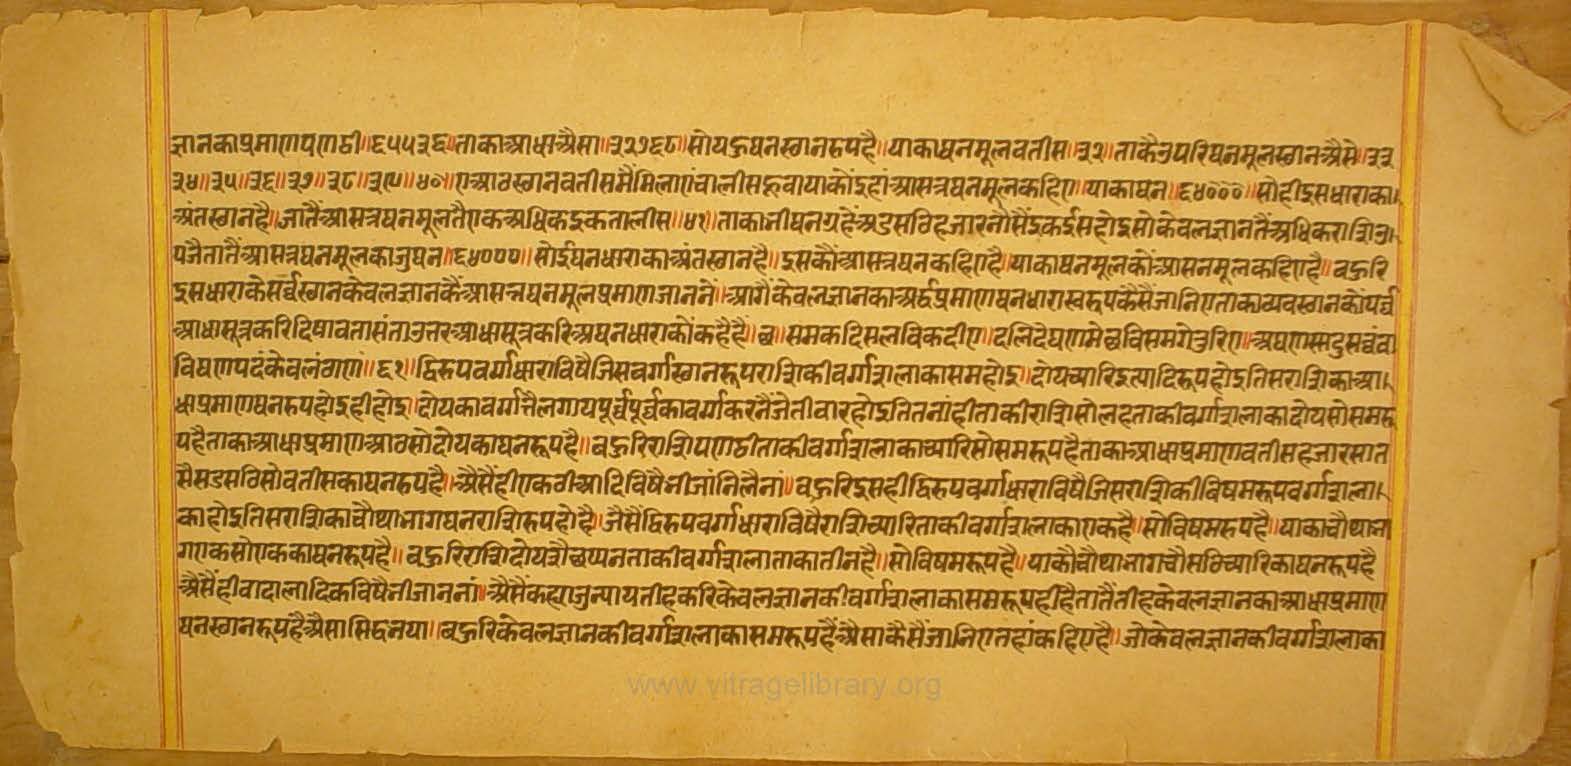 ज्ञानकाप्रमाणपणठी॥६५५३६॥ताकाआधाअैसा॥३२७६८॥सोयहुघनस्थानरुपहै॥याकाघनमूलवतीस॥३२॥ताकैउपरिघनमूलस्थानअैसे॥३३
३४॥३५॥३६॥३७॥३८॥३९॥४०॥एआठस्थानवतीसमैंमिलाएंचालीसहूवायाकोंइहांआसन्नघनमूलकहिए॥याकाघन॥६४०००॥सोहीइसधाराका
अंतस्थानहै॥जातैंआसन्नघनमूलतैंएकअधिकइकतालीस॥४१॥ताकाभीघनग्रहेंअडसठिहजारनोसैंइकईसहोइसोकेवलज्ञानतैंअधिकराशिउ
पजैतातैंआसन्नघनमूलकाजुघन॥६४०००॥सोईघनधाराकाअंतस्थानहै॥इसकौंआसन्नघनकहिएहै॥याकाघनमूलकोंआसनमूलकहिएहै॥बहुरि
इसधाराकेसर्वस्थानकेवलज्ञानकेंआसन्नघनमूलप्रमाणजानने॥आगैंकेवलज्ञानकाअर्द्धप्रमाणघनधारास्वरुपकैसैंजानिएताकाव्यवस्थानकोंपर्व
आधासूत्रकरिदिषावतासंताउत्तरआधासूत्रकरिअघनधाराकोंकहैहैं॥छ॥समकदिसलविकदीए॥दलिदेघणमेछविसमगेतुरिए॥अघणस्सदुसव्वंवा
विघणपदंकेवलंठाणं॥६१॥द्विरुपवर्गधाराविषैजिसवर्गस्थानरूपराशिकीवर्गशलाकासमहोइ॥दोयच्यारिइत्यादिरूपहोइतिसराशिकाआ
धाप्रमाणघनरुपहोइहीहोइ॥दोयकावर्गस्यौंलगायपूर्वपूर्वकावर्गकरतैंजेतीवारहोइतितनांहीताकीराशिसोलहताकीवर्गशलाकादोयसोसमरू
पहैताकाआधाप्रमाणआठसोदोयकाघनरूपहै॥बहुरिराशिपणठीताकीवर्गशलाकाच्यारिसोसमरूपहैताकाआधाप्रमाणवतीसहजारसात
सैसडसठिसोवतीसकाघनरुपहै॥अैसैंहीएकठीआदिविषैभीजांनिलैनां॥बहुरिइसहीद्विरुपवर्गधाराविषैजिसराशिकीविषमरूपवर्गशला
काहोइतिसराशिकाचौथाभागघनराशिरुपहोहै॥जैसैंद्विरुपवर्गधाराविषैराशिच्यारिताकीवर्गशलाकाएकहै॥सोविषमरुपहै॥याकाचौथाभा
गएकसोएककाघनरूपहै॥बहुरिराशिदोयसैछप्पनताकीवर्गशलाताकातीनहै॥सोविषमरूपहै॥याकौचौथाभागचौसठिच्यारिकाघनरूपहै
अैसैंहीवादालादिकविषैभीजाननां॥अैसैंकह्याजुन्यायतीहकरिकेवलज्ञानकीवर्गशलाकासमरूपहीहैतातैंतीहकेवलज्ञानकाआधाप्रमाण
घनस्थानरूपहैअैसासिद्धनया॥बहुरिकेवलज्ञानकीवर्गशलाकासमरूपहैंअैसाकैसैंजानिएतहांकहिएहै॥जोकेवलज्ञानकीवर्गशलाका
www.vitragelibrary.org